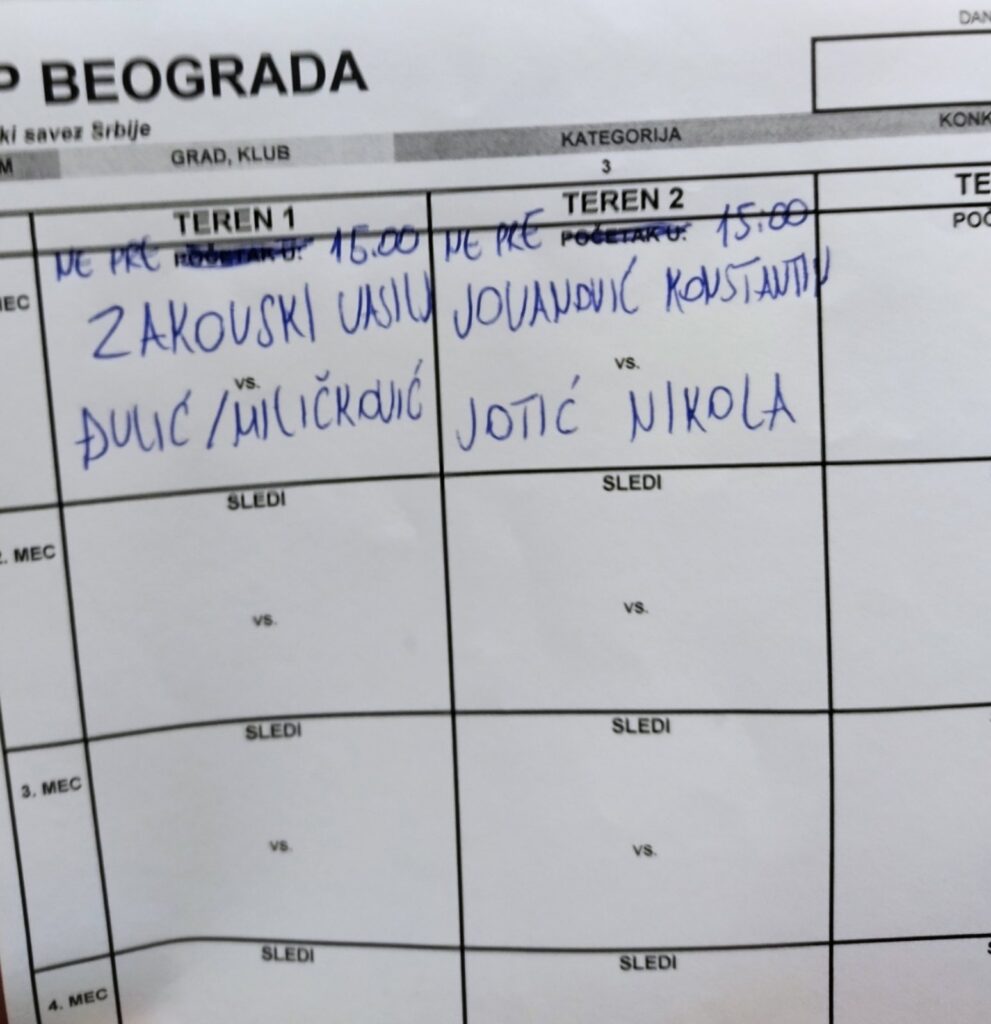 P BEOGRADA
DAN
ki savez Srbije
M GRAD, KLUB KATEGORIJA KONK
3
TEREN 1 TEREN 2 TE
NE PRE POČETAK U: 15.00 NE PRE POČETAK U: 15:00 POČ
MEC ZAKOVSKI VASILIJ JOVANOVIĆ KONSTANTIN
vs. vs.
ĐULIĆ/MILIČKOVIĆ JOTIĆ NIKOLA
SLEDI SLEDI
2. MEC
vs. vs.
SLEDI SLEDI
3. MEC
vs. vs.
SLEDI SLEDI
4. MEC